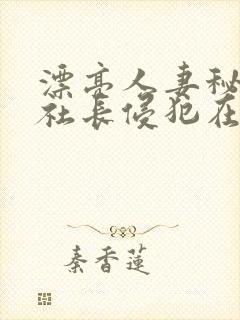 漂亮人妻秘
社长侵犯在
秦香莲